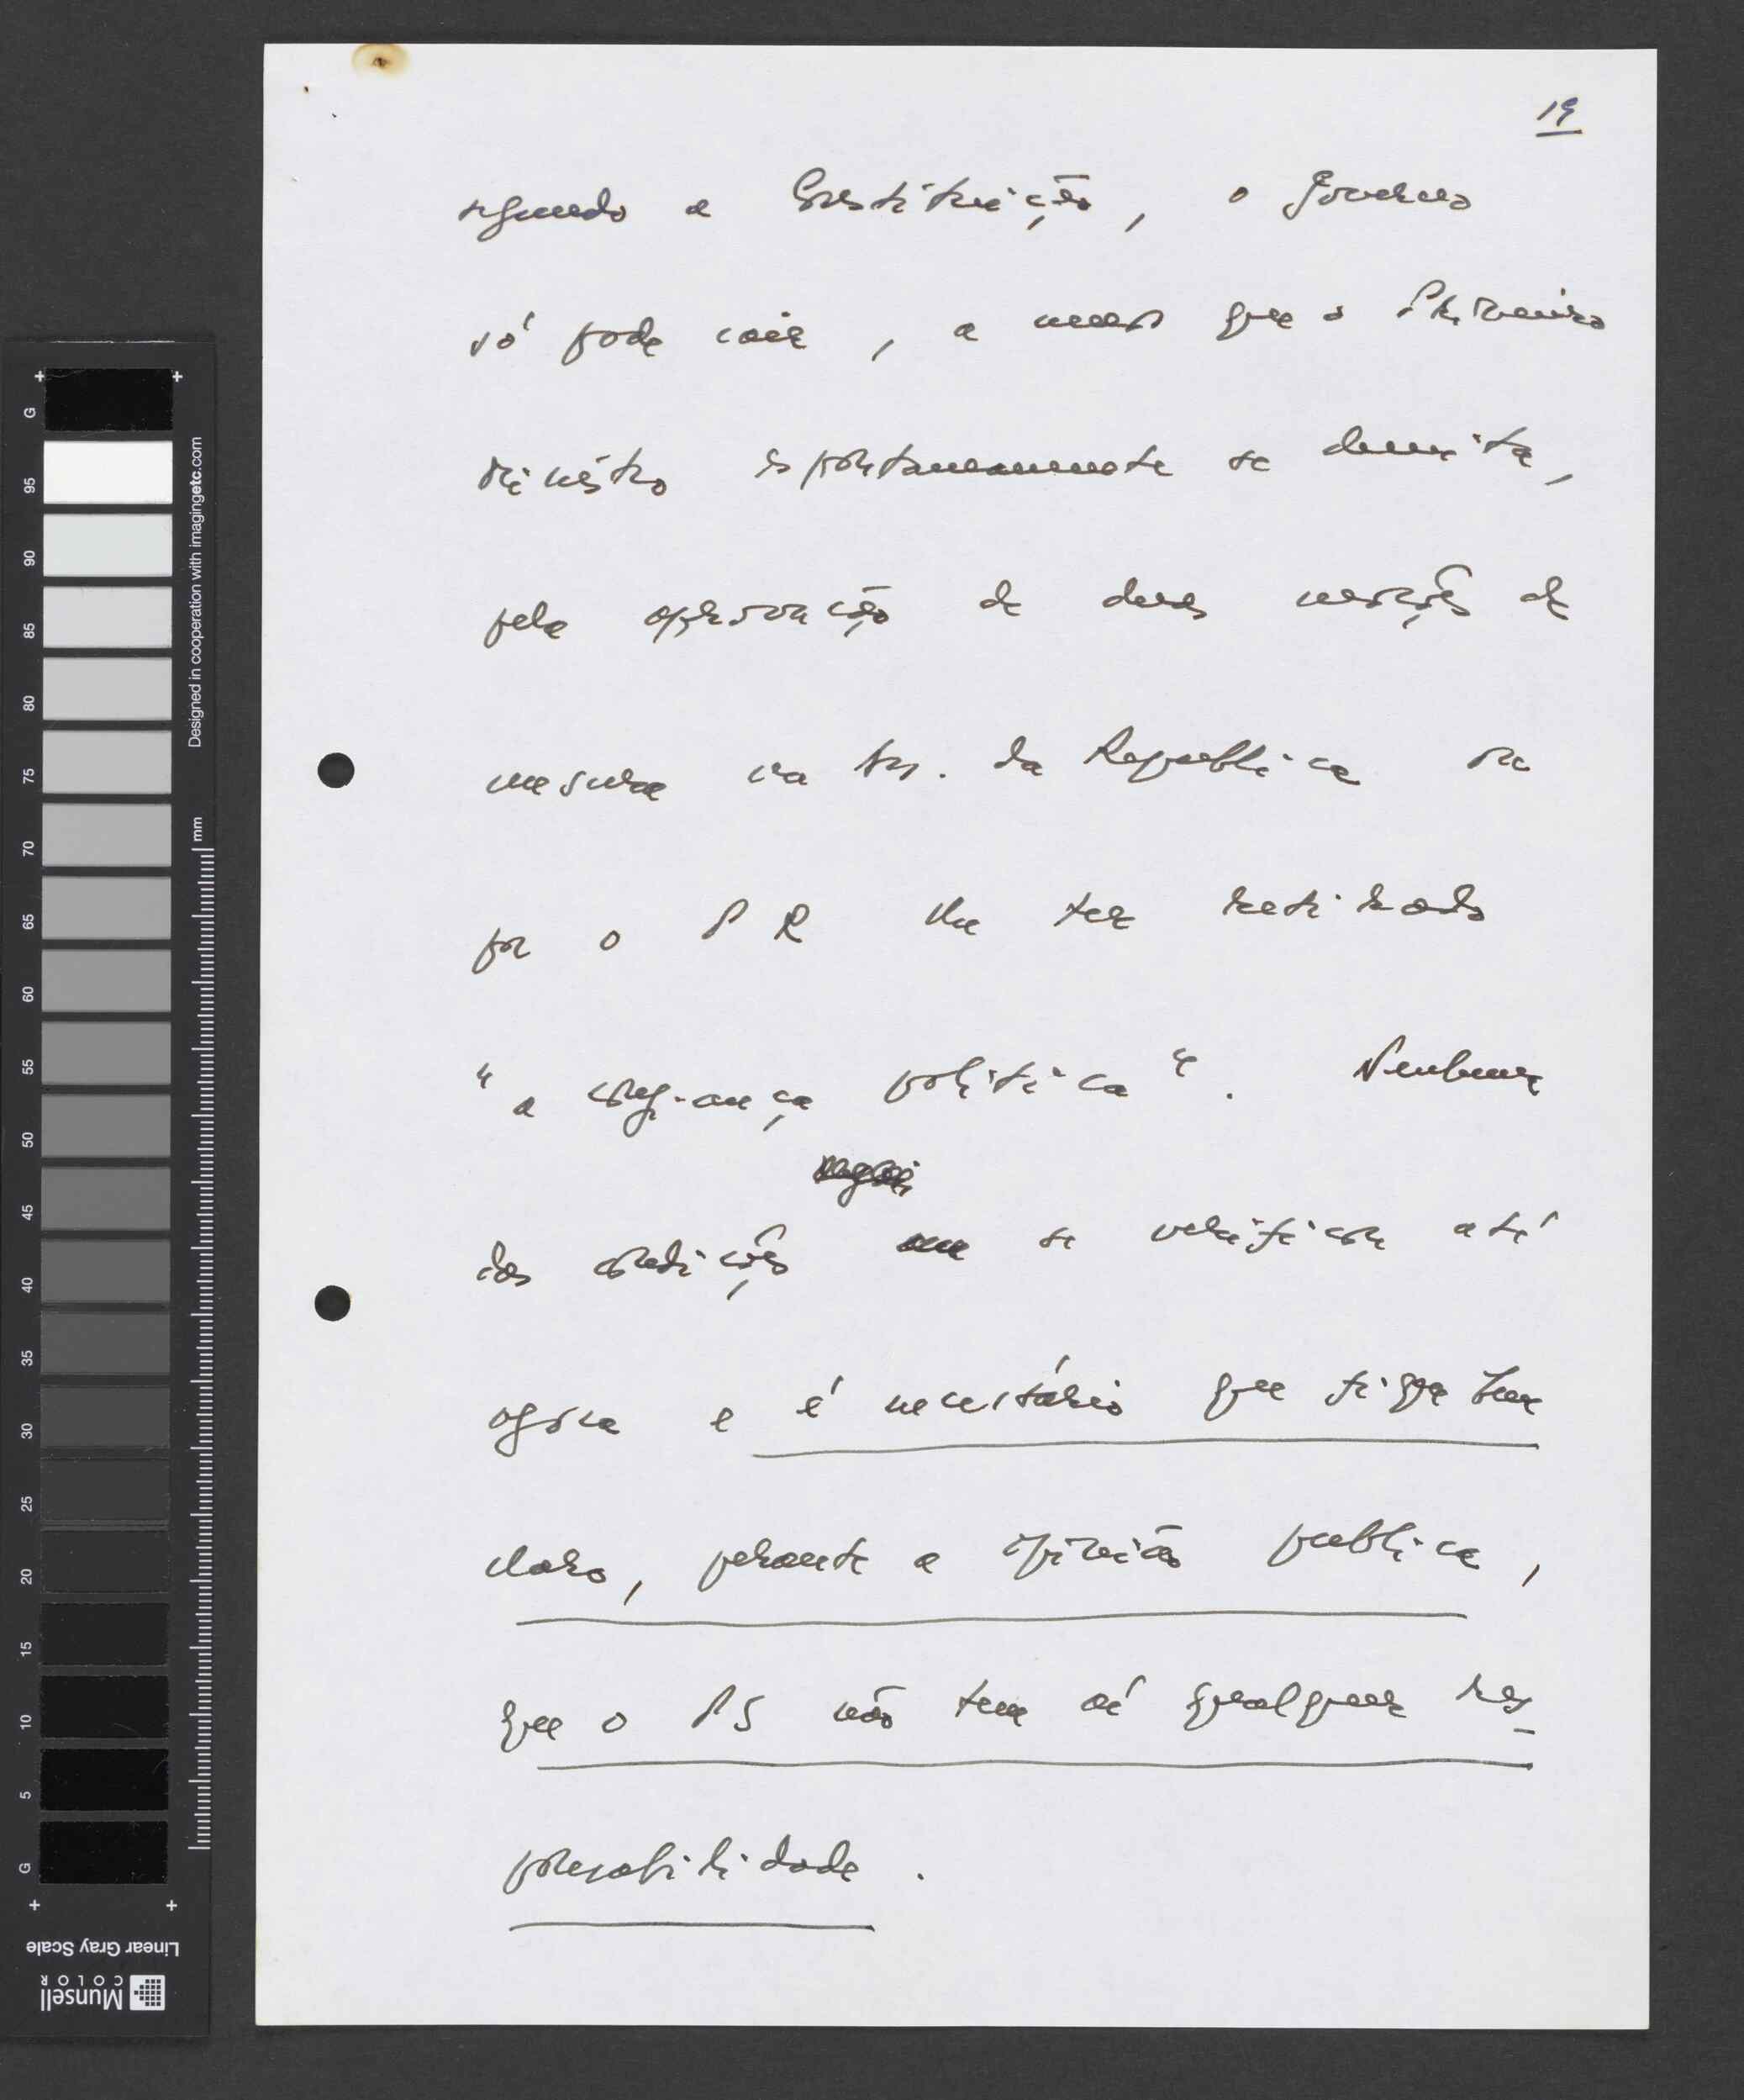 19
segundo a Constituição, o Governo
só pode cair, a menos que o Primeiro
Ministro espontaneamente se demita,
pela aprovação de duas moções de
censura na Ass. da Republica ou
por o PR lhe ter retirado
"a confiança politica". Nenhuma
das condições se verificou até
agora e é necessário que fique bem
claro, perante a opinião publica,
que o PS não tem aí qualquer res-
ponsabilidade.
G
95
90
85
80
75
70
65
60
55
50
45
40
35
30
25
20
15
10
5
G
Designed in cooperation with imagingetc.com
mm
Linear Gray Scale
Munsell
COLOR